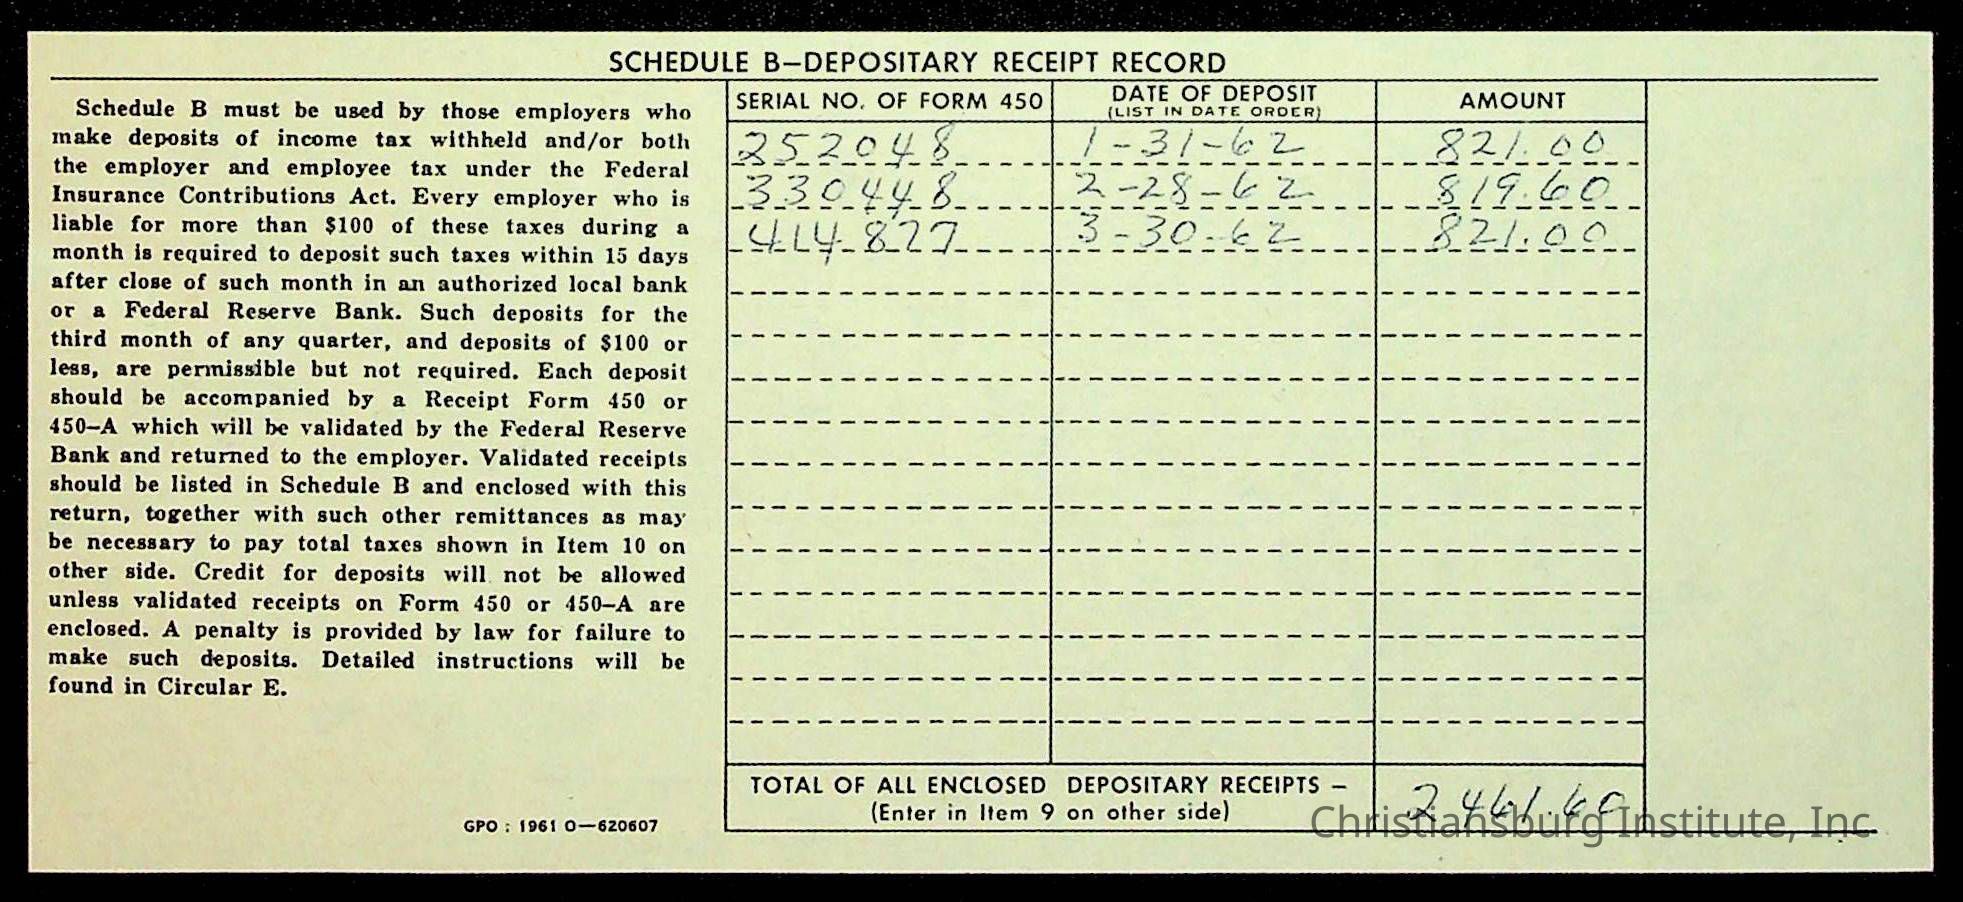 SCHEDULE B—DEPOSITARY RECEIPT RECORD
Schedule B must be used by those employers who
make deposits of income tax withheld and/or both
the employer and employee tax under the Federal
Insurance Contributions Act. Every employer who is
liable for more than $100 of these taxes during a
month is required to deposit such taxes within 15 days
after close of such month in an authorized local bank
or a Federal Reserve Bank. Such deposits for the
third month of any quarter, and deposits of $100 or
less, are permissible but not required. Each deposit
should be accompanied by a Receipt Form 450 or
450–A which will be validated by the Federal Reserve
Bank and returned to the employer. Validated receipts
should be listed in Schedule B and enclosed with this
return, together with such other remittances as may
be necessary to pay total taxes shown in Item 10 on
other side. Credit for deposits will not be allowed
unless validated receipts on Form 450 or 450–A are
enclosed. A penalty is provided by law for failure to
make such deposits. Detailed instructions will be
found in Circular E.
GPO : 1961 O—620607
SERIAL NO. OF FORM 450 DATE OF DEPOSIT AMOUNT
(LIST IN DATE ORDER)
252048 1-31-62 821.00
330448 2-28-62 819.60
414827 3-30-62 821.00
TOTAL OF ALL ENCLOSED DEPOSITARY RECEIPTS – 2461.60
(Enter in Item 9 on other side)
Christiansburg Institute, Inc.